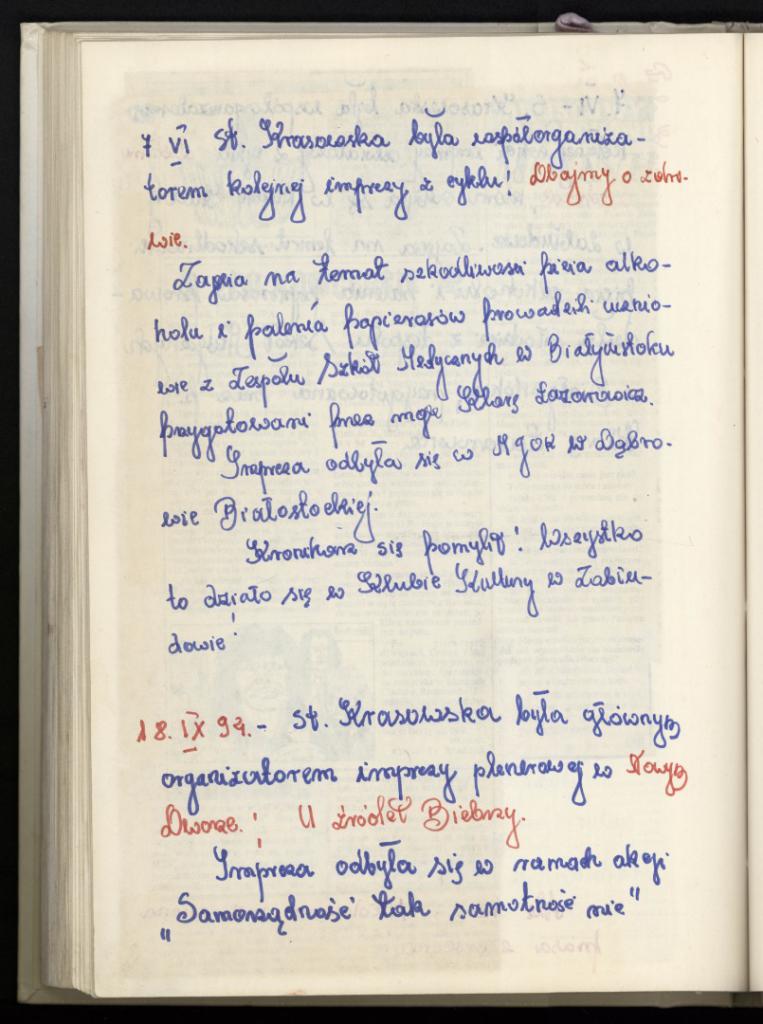 7 VI St. Krasowska była współorganiza-
torem kolejnej imprezy z cyklu! Dbajmy o zdro-
wie.
Zajęcia na temat szkodliwości picia alko-
holu i palenia papierosów prowadzili ucznio-
wie z Zespołu Szkół Medycznych w Białymstoku
przygotowani przez mgr Klarę Łazarewicz.
Impreza odbyła się w MGOK w Dąbro-
wie Białostockiej.
Kronikarz się pomylił! Wszystko
to działo się w Klubie Kultury w Zabłu-
dowie!
18. IX 92. - St. Krasowska była głównym
organizatorem imprezy plenerowej w Nowym
Dworze.! U źródeł Biebrzy.
Impreza odbyła się w ramach akcji
"Samorządność tak samotność nie"